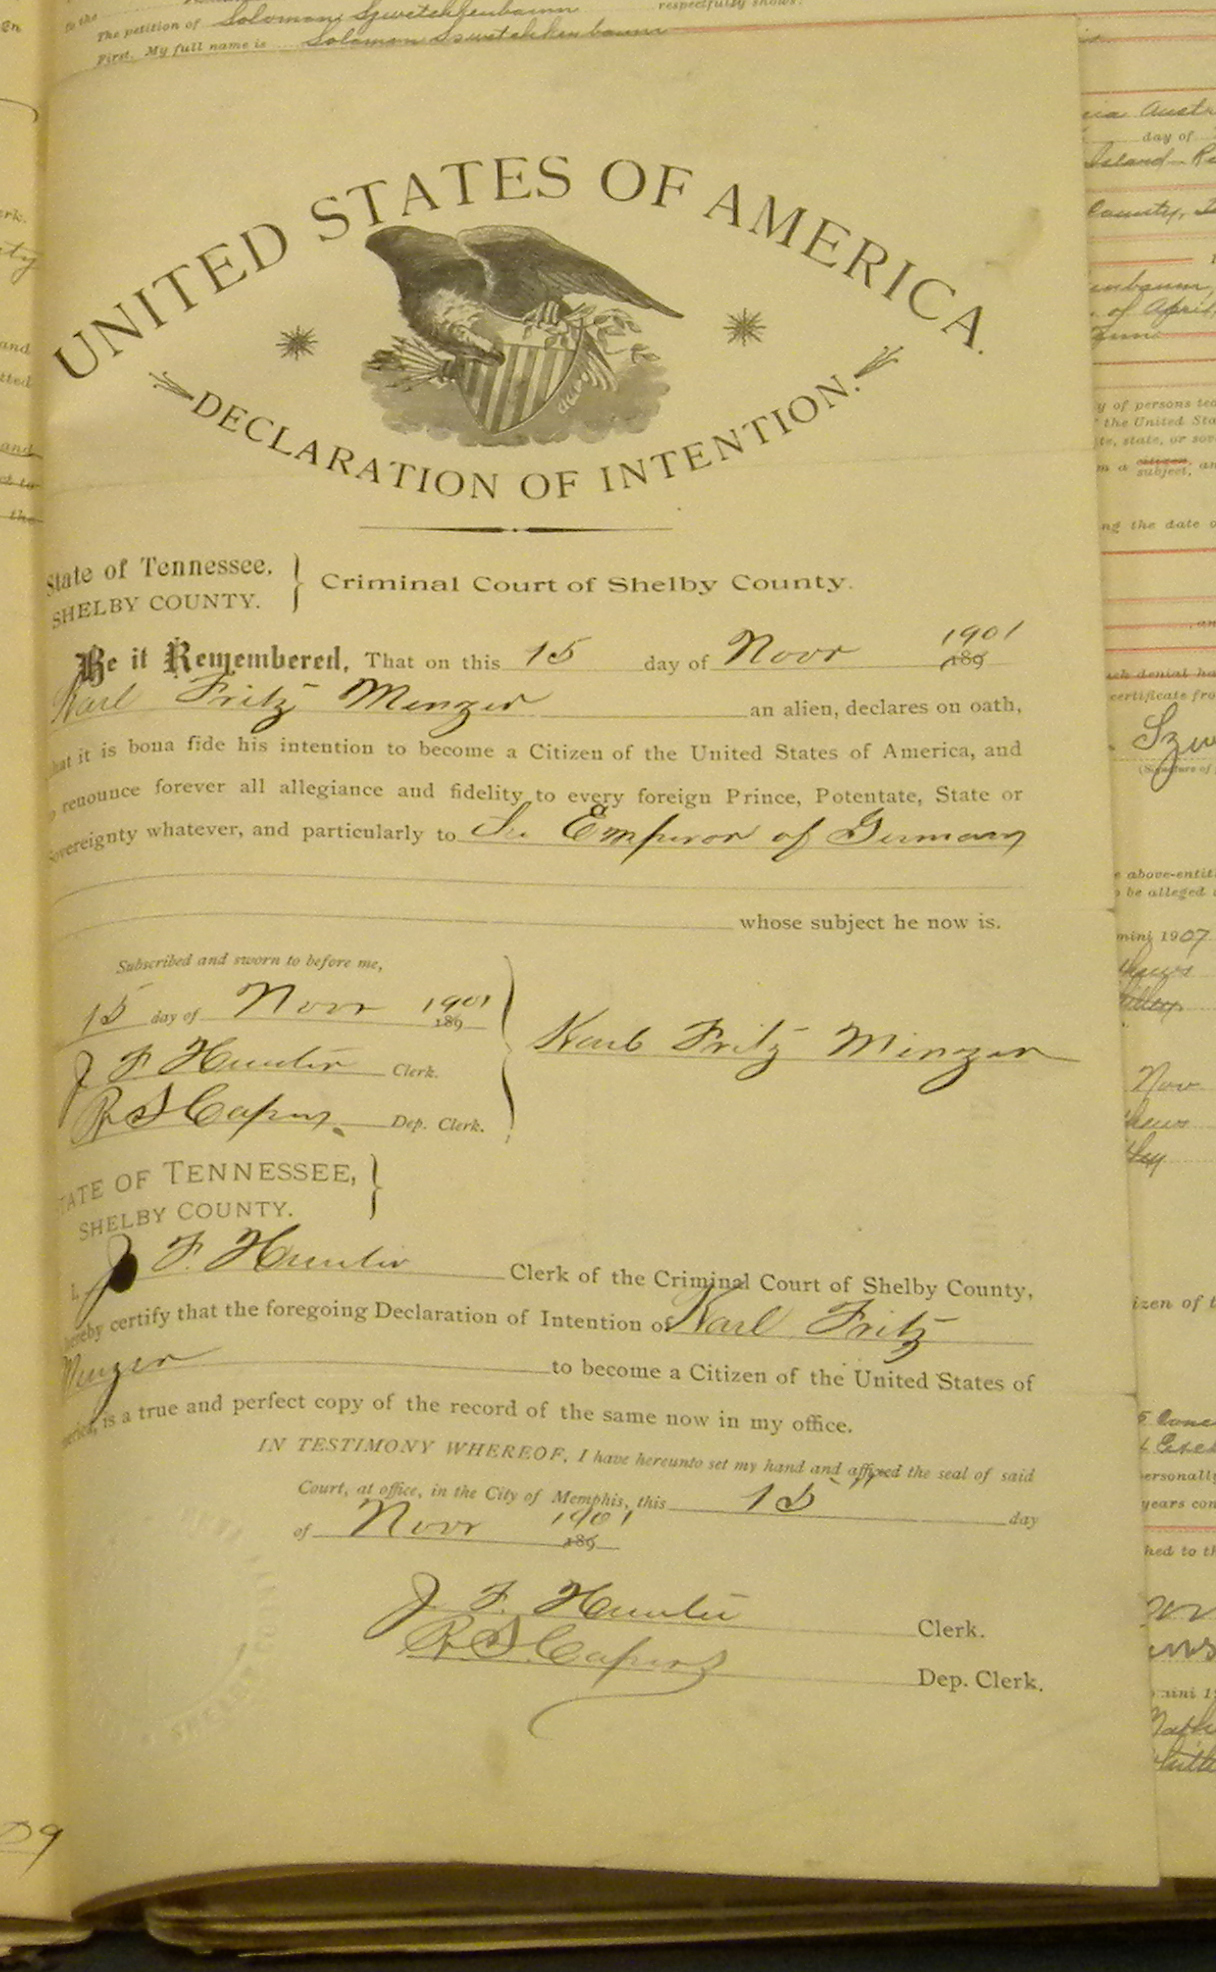 to the
The petition of Solomon Szwetchkenbaum respectfully shows:
First. My full name is Solomon Szwetchkenbaum
UNITED STATES OF AMERICA.
DECLARATION OF INTENTION.
State of Tennessee,
SHELBY COUNTY.
Criminal Court of Shelby County.
Be it Remembered, That on this 15 day of Novr 1901 189
Karl Fritz Menzer an alien, declares on oath,
that it is bona fide his intention to become a Citizen of the United States of America, and
renounce forever all allegiance and fidelity to every foreign Prince, Potentate, State or
Sovereignty whatever, and particularly to The Emperor of Germany
whose subject he now is.
Subscribed and sworn to before me,
15 day of Novr 1901 189
J F Hunter Clerk.
R S Capers Dep. Clerk.
Karl Fritz Menzer
STATE OF TENNESSEE,
SHELBY COUNTY.
I, J F. Hunter Clerk of the Criminal Court of Shelby County,
hereby certify that the foregoing Declaration of Intention of Karl Fritz
Menzer to become a Citizen of the United States of
America, is a true and perfect copy of the record of the same now in my office.
IN TESTIMONY WHEREOF, I have hereunto set my hand and affixed the seal of said
Court, at office, in the City of Memphis, this 15" day
of Novr 1901 189
J F. Hunter Clerk.
R S. Capers Dep. Clerk.
day of
County,
of April,
y of persons
the United
state, or
subject, an
ng the date o
certificate
(Signature of
above-entit
be alleged
1907
Nov
izen of t
years con